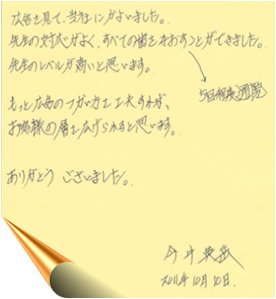 広告を見て、当社にかよいました。
先生の対応がよく、すべての歯をなおすことができました。
先生のレベルが高いと思います。
もっと広告のつかい方を工夫すれば、
お客様の層も広げられると思います。
ありがとう ございました。
2011年10月10日.